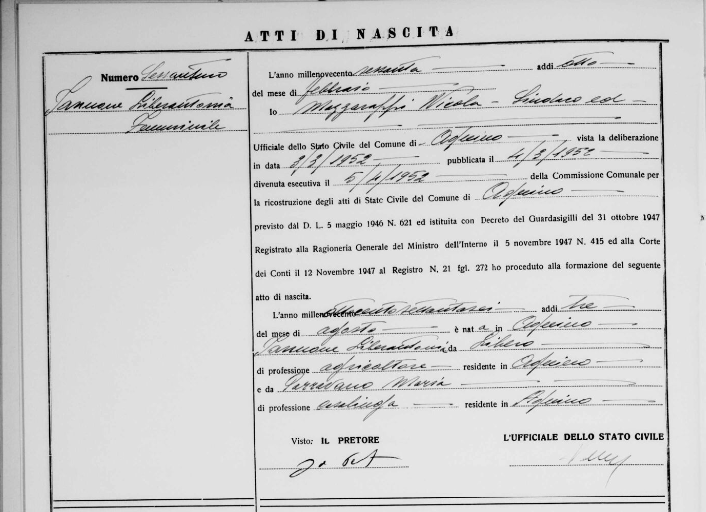 ATTI DI NASCITA
Numero Sessantuno
Iannone Liberantonia
Femminile
L'anno millenovecento sessanta addì otto
del mese di febbraio
Io Mazzaroppi Nicola - Sindaco ed
Ufficiale dello Stato Civile del Comune di Aquino vista la deliberazione
in data 3/3/1952 pubblicata il 4/3/1952
divenuta esecutiva il 5/4/1952 della Commissione Comunale per
la ricostruzione degli atti di Stato Civile del Comune di Aquino
previsto dal D. L. 5 maggio 1946 N. 621 ed istituita con Decreto del Guardasigilli del 31 ottobre 1947
Registrato alla Ragioneria Generale del Ministro dell'Interne il 5 novembre 1947 N. 415 ed alla Corte
dei Conti il 12 Novembre 1947 al Registro N. 21 fgl. 272 ho proceduto alla formazione del seguente
atto di nascita.
L'anno millenovecento addì tre
del mese di agosto è nat a in Aquino
Iannone Liberantonia da Libero
di professione agricoltore residente in Aquino
e da Maria
di professione casalinga residente in Aquino
Visto: IL PRETORE L'UFFICIALE DELLO STATO CIVILE